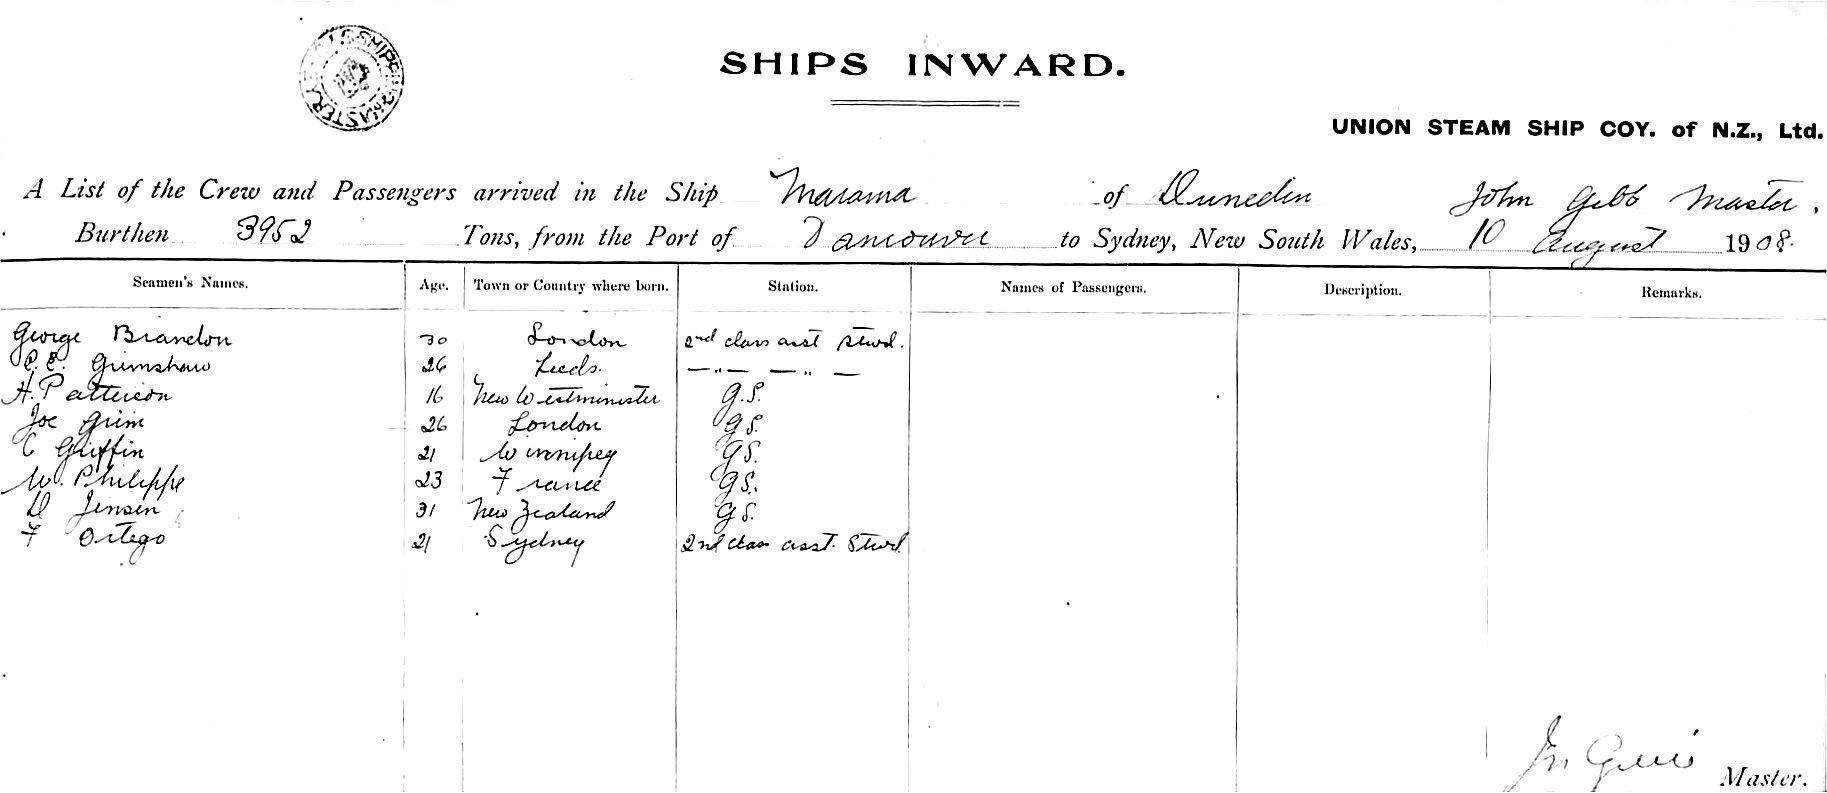 SHIPPING MASTER
SHIPS INWARD.
UNION STEAM SHIP COY. of N.Z., Ltd.
A List of the Crew and Passengers arrived in the Ship Marama of Dunedin John Gibb Master.
Burthen 3952 Tons, from the Port of Vancouver to Sydney, New South Wales, 10 August 1908.
Seamen's Names. Age. Town or Country where born. Station. Names of Passengers. Description. Remarks.
George Brandon 30 London 2nd class asst stwd.
C. E. Grimshaw 26 Leeds. — „ — — „ —
H. Patterson 16 New Westminister G.S.
Joe Grim 26 London GS.
C Griffin 21 Winnipeg GS.
W. Philippe 23 France GS.
D Jensen 31 New Zealand GS.
F Ortego 21 Sydney 2nd class asst. Stwd.
Master.